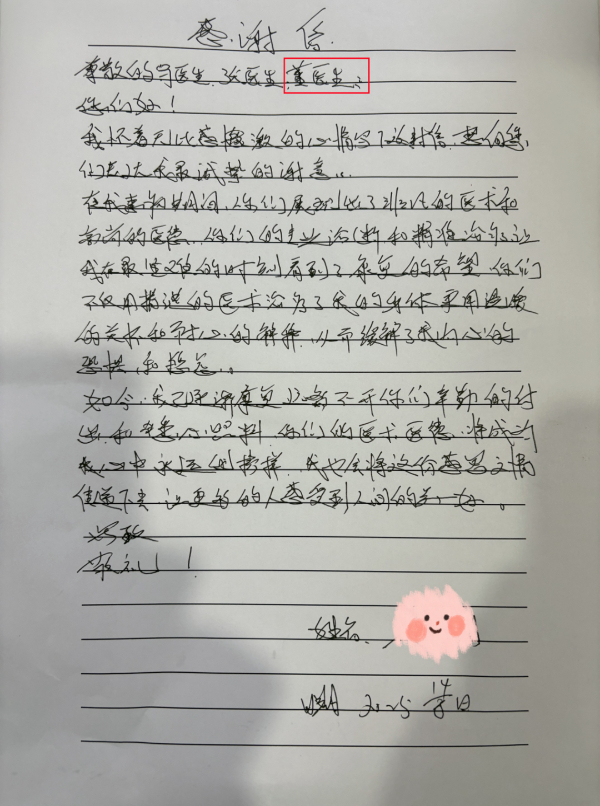 感谢信
尊敬的 医生、张医生、董医生：
你们好！
我怀着无比感激的心情写下这封信，想向您
们表达我最诚挚的谢意。
在我患病期间，你们展现出了非凡的医术和
高尚的医德，你们的专业诊断和精准治疗，让
我在最艰难的时刻看到了康复的希望 你们
不仅用精湛的医术治疗了我的身体 更用温暖
的关怀和耐心的解释，从而缓解了我内心的
恐惧和 。
如今，我已 康复 离不开你们辛勤的付
出和 心照料 你们的医术医德，将成为
我心中永远 榜样，我也会将这份 情
传递下去 让更多的人感受到人间的 。
此致
敬礼！
姓名
2025 14 日